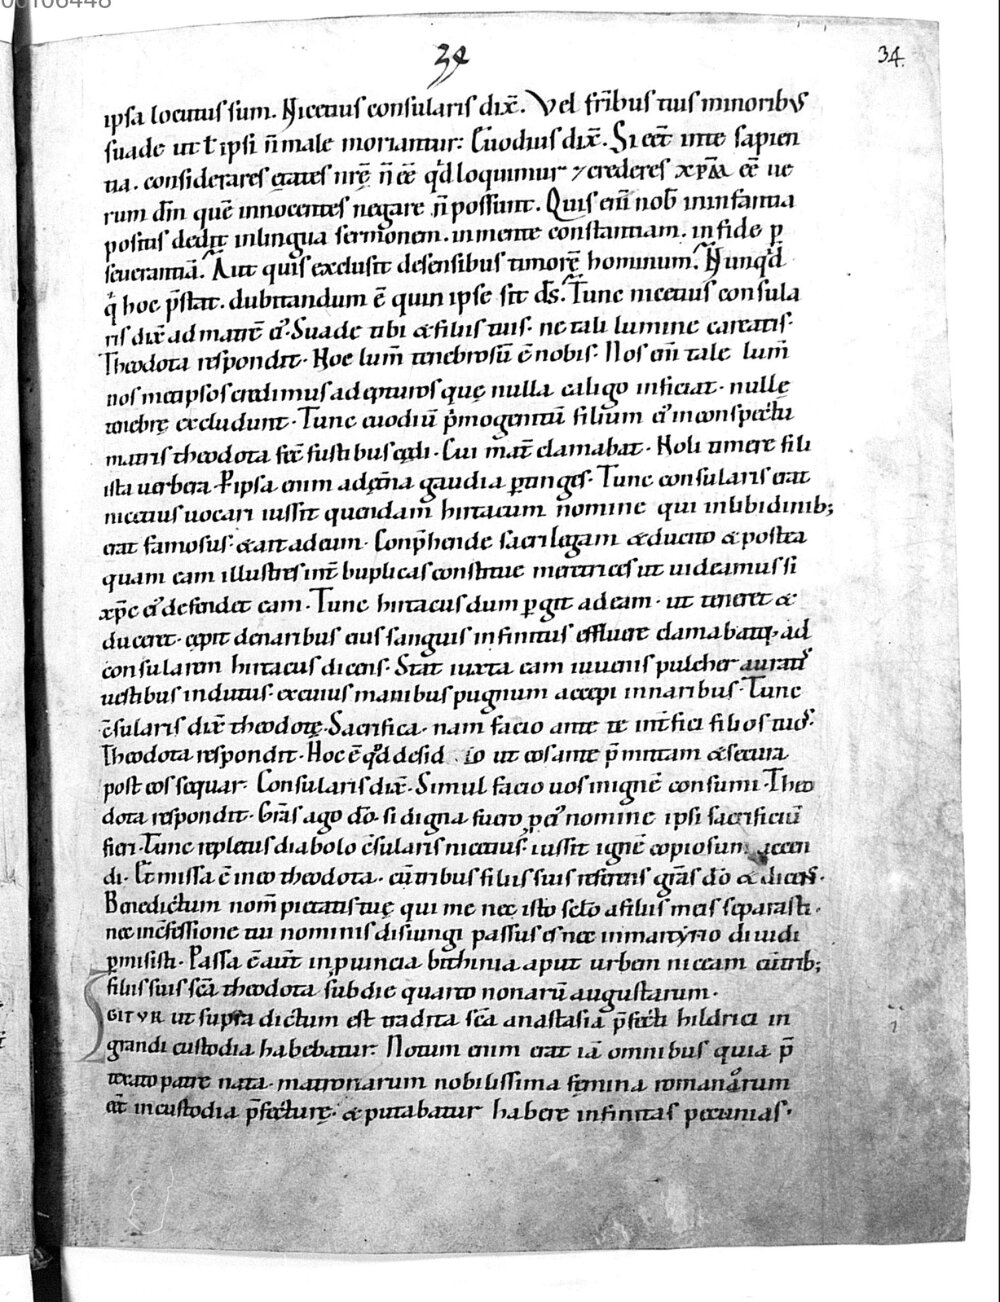 00106448
34
34.
ipsa locutus sum. Nicetius consularis dix̄. Vel fr̄ibus tuis minoribus
suade ut ł ipsi n̄ male moriantur: Euodius dix̄. Si eēt in te sapien
tia. considerares etates nr̄ę n̄ eē qd̄ loquimur ⁊ crederes xp̄m̄ eē ue
rum dm̄ quē innocentes negare n̄ possunt. Quis eni̅ nob̄ in infantia
positis dedit in lingua sermonem. in mente constantiam. in fide p̱
seuerantiā. Aut quis exclusit de sensibus timorē hominum. Nunqd̄
q̄ hoc p̄stat. dubitandum ē quin ipse sit ds̄. Tunc nicetius consula
ris dix̄ ad matrē ei᷒. Suade tibi & filiis tuis. ne tali lumine careatis.
Theodota respondit. Hoc lum̄ tenebrosū ē nobis. Nos eni̅ tale lum̄
nos metipsos credimus adepturos quę nulla caligo inficiat. nullę
tenebrę excludunt. Tunc euodiū p̄mogenitū filium ei᷒ in conspectu
matris theodota fec̄ fustibus cędi. Cui mat̄ clamabat. Noli timere fili
ista uerbera. P ipsa enim ad ęt̄na gaudia p̱tinges. Tunc consularis erat
nicetius uocari iussit quendam hirtacum nomine qui in libidinib;
erat famosus. & ait ad eum. Conp̄hende sacrilegam & ducito & postea
quam eam illustres int̄ buplicas constitue meretrices ut uideamus si
xp̄c ei᷒ defendet eam. Tunc hirtacus dum p̱git ad eam. ut teneret &
duceret. cępit de naribus eius sanguis infinitus effluere clamabatq; ad
consularem hirtacus dicens. Stat iuxta eam iuuenis pulcher auratis
uestibus indutus. ex cuius manibus pugnum accepi in naribus. Tunc
c̄sularis dix̄ theodotę. Sacrifica. nam facio ante te int̄fici filios tuos.
Theodota respondit. Hoc ē qd̄ desid io ut eos ante p̄mittam & secura
post eos sequar. Consularis dix̄. Simul facio uos in ignē consumi. Theo
dota respondit. Gr̄as ago dō. si digna fuero p̱ ei᷒ nomine ipsi sacrificiū
fieri. Tunc repletus diabolo c̄sularis nicetius. iussit ignē copiosum accen
di. Et missa ē in eo theodota. cū trib᷒ filiis suis referens gr̄as dō & dicens.
Benedictum nom̄ pietatis tuę qui me nec isto sclō a filiis meis separasti.
nec in c̄fessione tui nominis disiungi passus es nec in martyrio diuidi
p̱misisti. Passa ē aut̄ in puincia bithinia aput urbem niceam cū trib;
filiis suis sc̄a theodota sub die quarto nonarū augustarum.
IGITVR ut supra dictum est tradita sc̄a anastasia p̄fecti hildrici in
grandi custodia habebatur. Notum enim erat iā omnibus quia p̄
textato patre nata. matronarum nobilissima femina romanarum
eēt in custodia p̄fecturę. & putabatur habere infinitas pecunias.